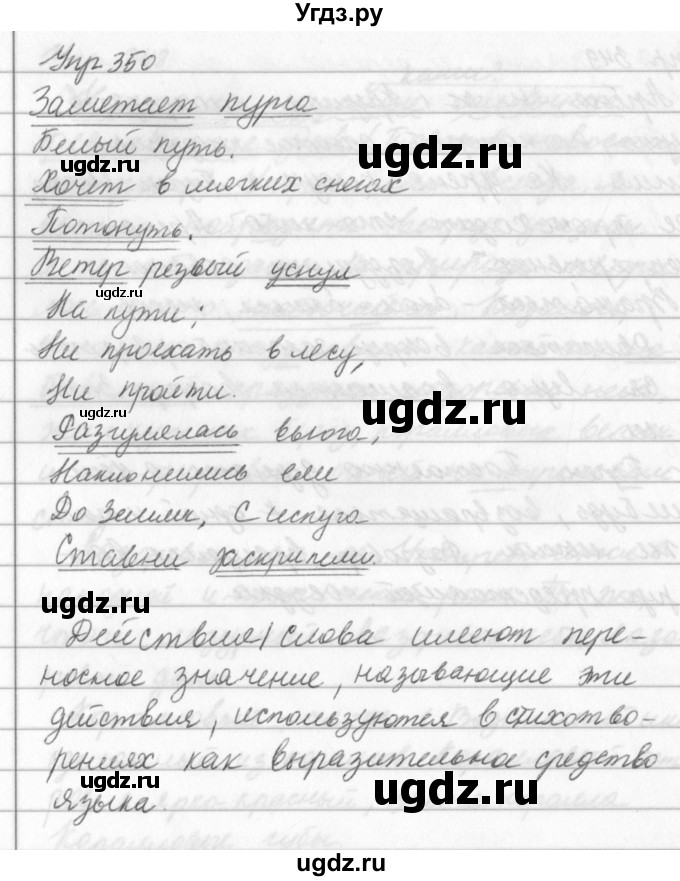 Угдз.ру
Упр 350
Заметает пурга
Белый путь.
ugdz.ru
Хочет в мягких снегах
Потонуть.
Ветер резвый уснул
На пути;
Ни проехать в лесу,
Ни пройти.
Разгулялась вьюга,
Наклонились ели
До земли, С испуга
Ставни заскрипели.
Действия/слова имеют пере-
носное значение, называющие эти
действия, используются в стихотво-
рениях как выразительное средство
языка.
ugdz.ru